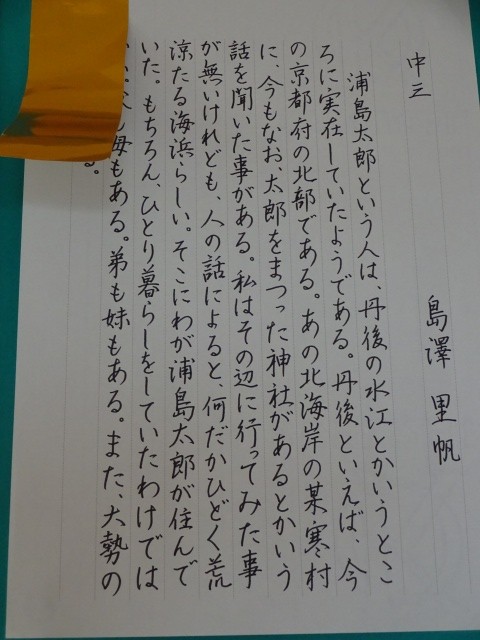 中三 島澤 里帆
浦島太郎という人は、丹後の水江とかいうとこ
ろに実在していたようである。丹後といえば、今
の京都府の北部である。あの北海岸の某寒村
に、今もなお、太郎をまつった神社があるとかいう
話を聞いた事がある。私はその辺に行ってみた事
が無いけれども、人の話によると、何だかひどく荒
涼たる海浜らしい。そこにわが浦島太郎が住んで
いた。もちろん、ひとり暮らしをしていたわけでは
い。父も母もある。弟も妹もある。また、大勢の
る。